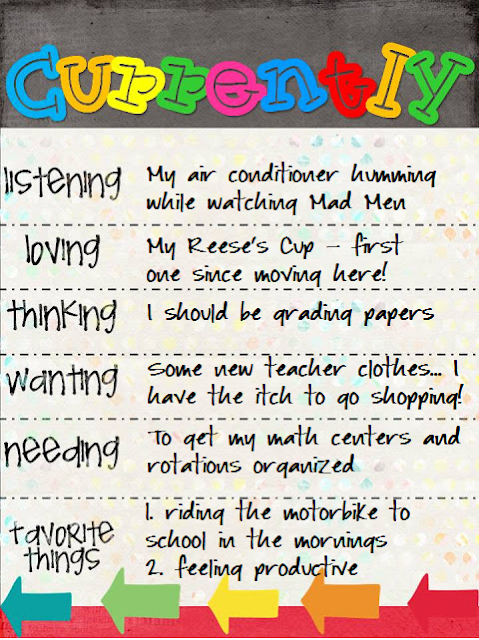 Currently
listening
My air conditioner humming
while watching Mad Men
loving
My Reese's Cup - first
one since moving here!
thinking
I should be grading papers
wanting
Some new teacher clothes... I
have the itch to go shopping!
needing
To get my math centers and
rotations organized
favorite
things
1. riding the motorbike to
school in the mornings
2. feeling productive